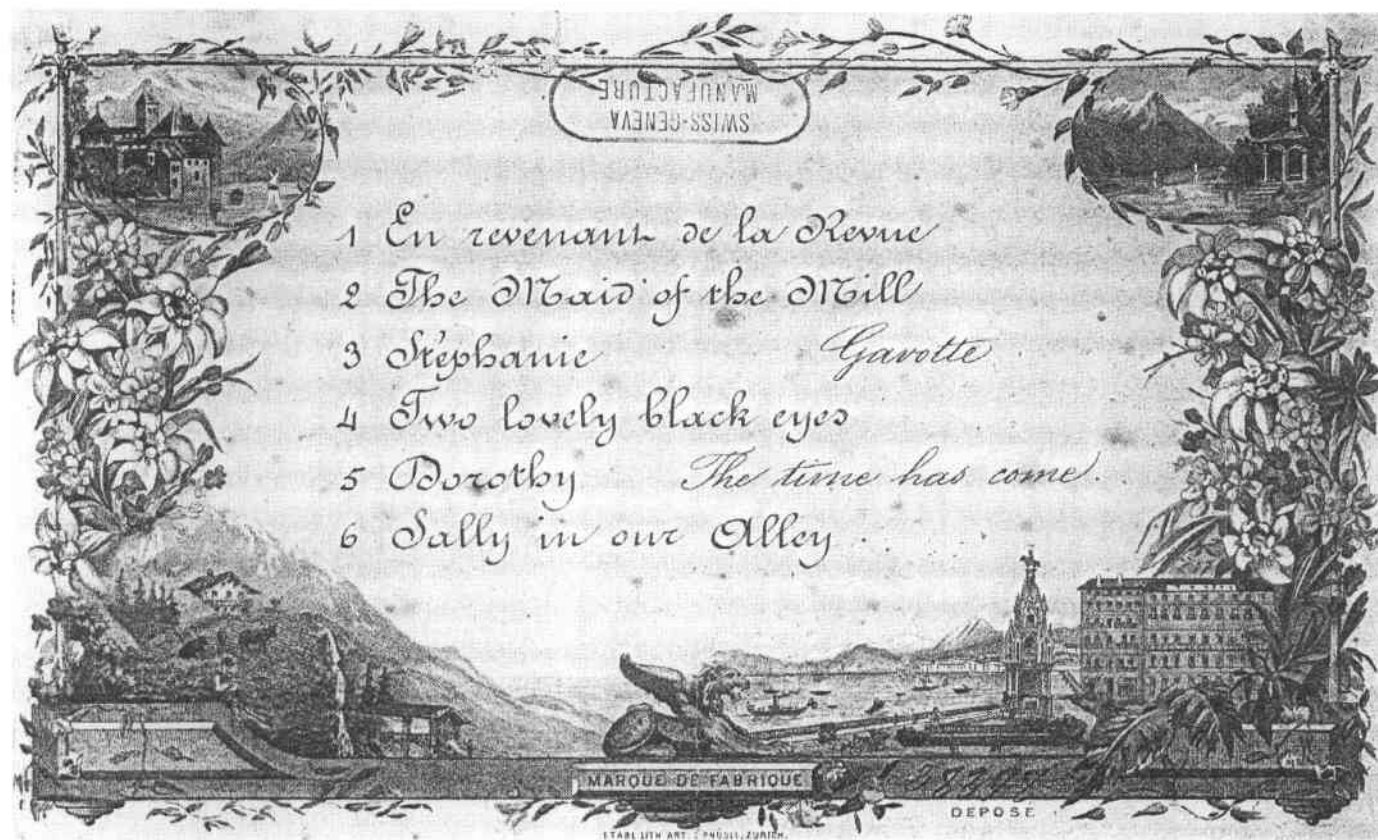 SWISS-GENEVA
MANUFACTURE
1 En revenant de la Revue
2 The Maid of the Mill
3 Stéphanie Gavotte
4 Two lovely black eyes
5 Dorothy The time has come
6 Sally in our Alley
MARQUE DE FABRIQUE
DEPOSE
ETABL. LITH. ART. ZURICH.